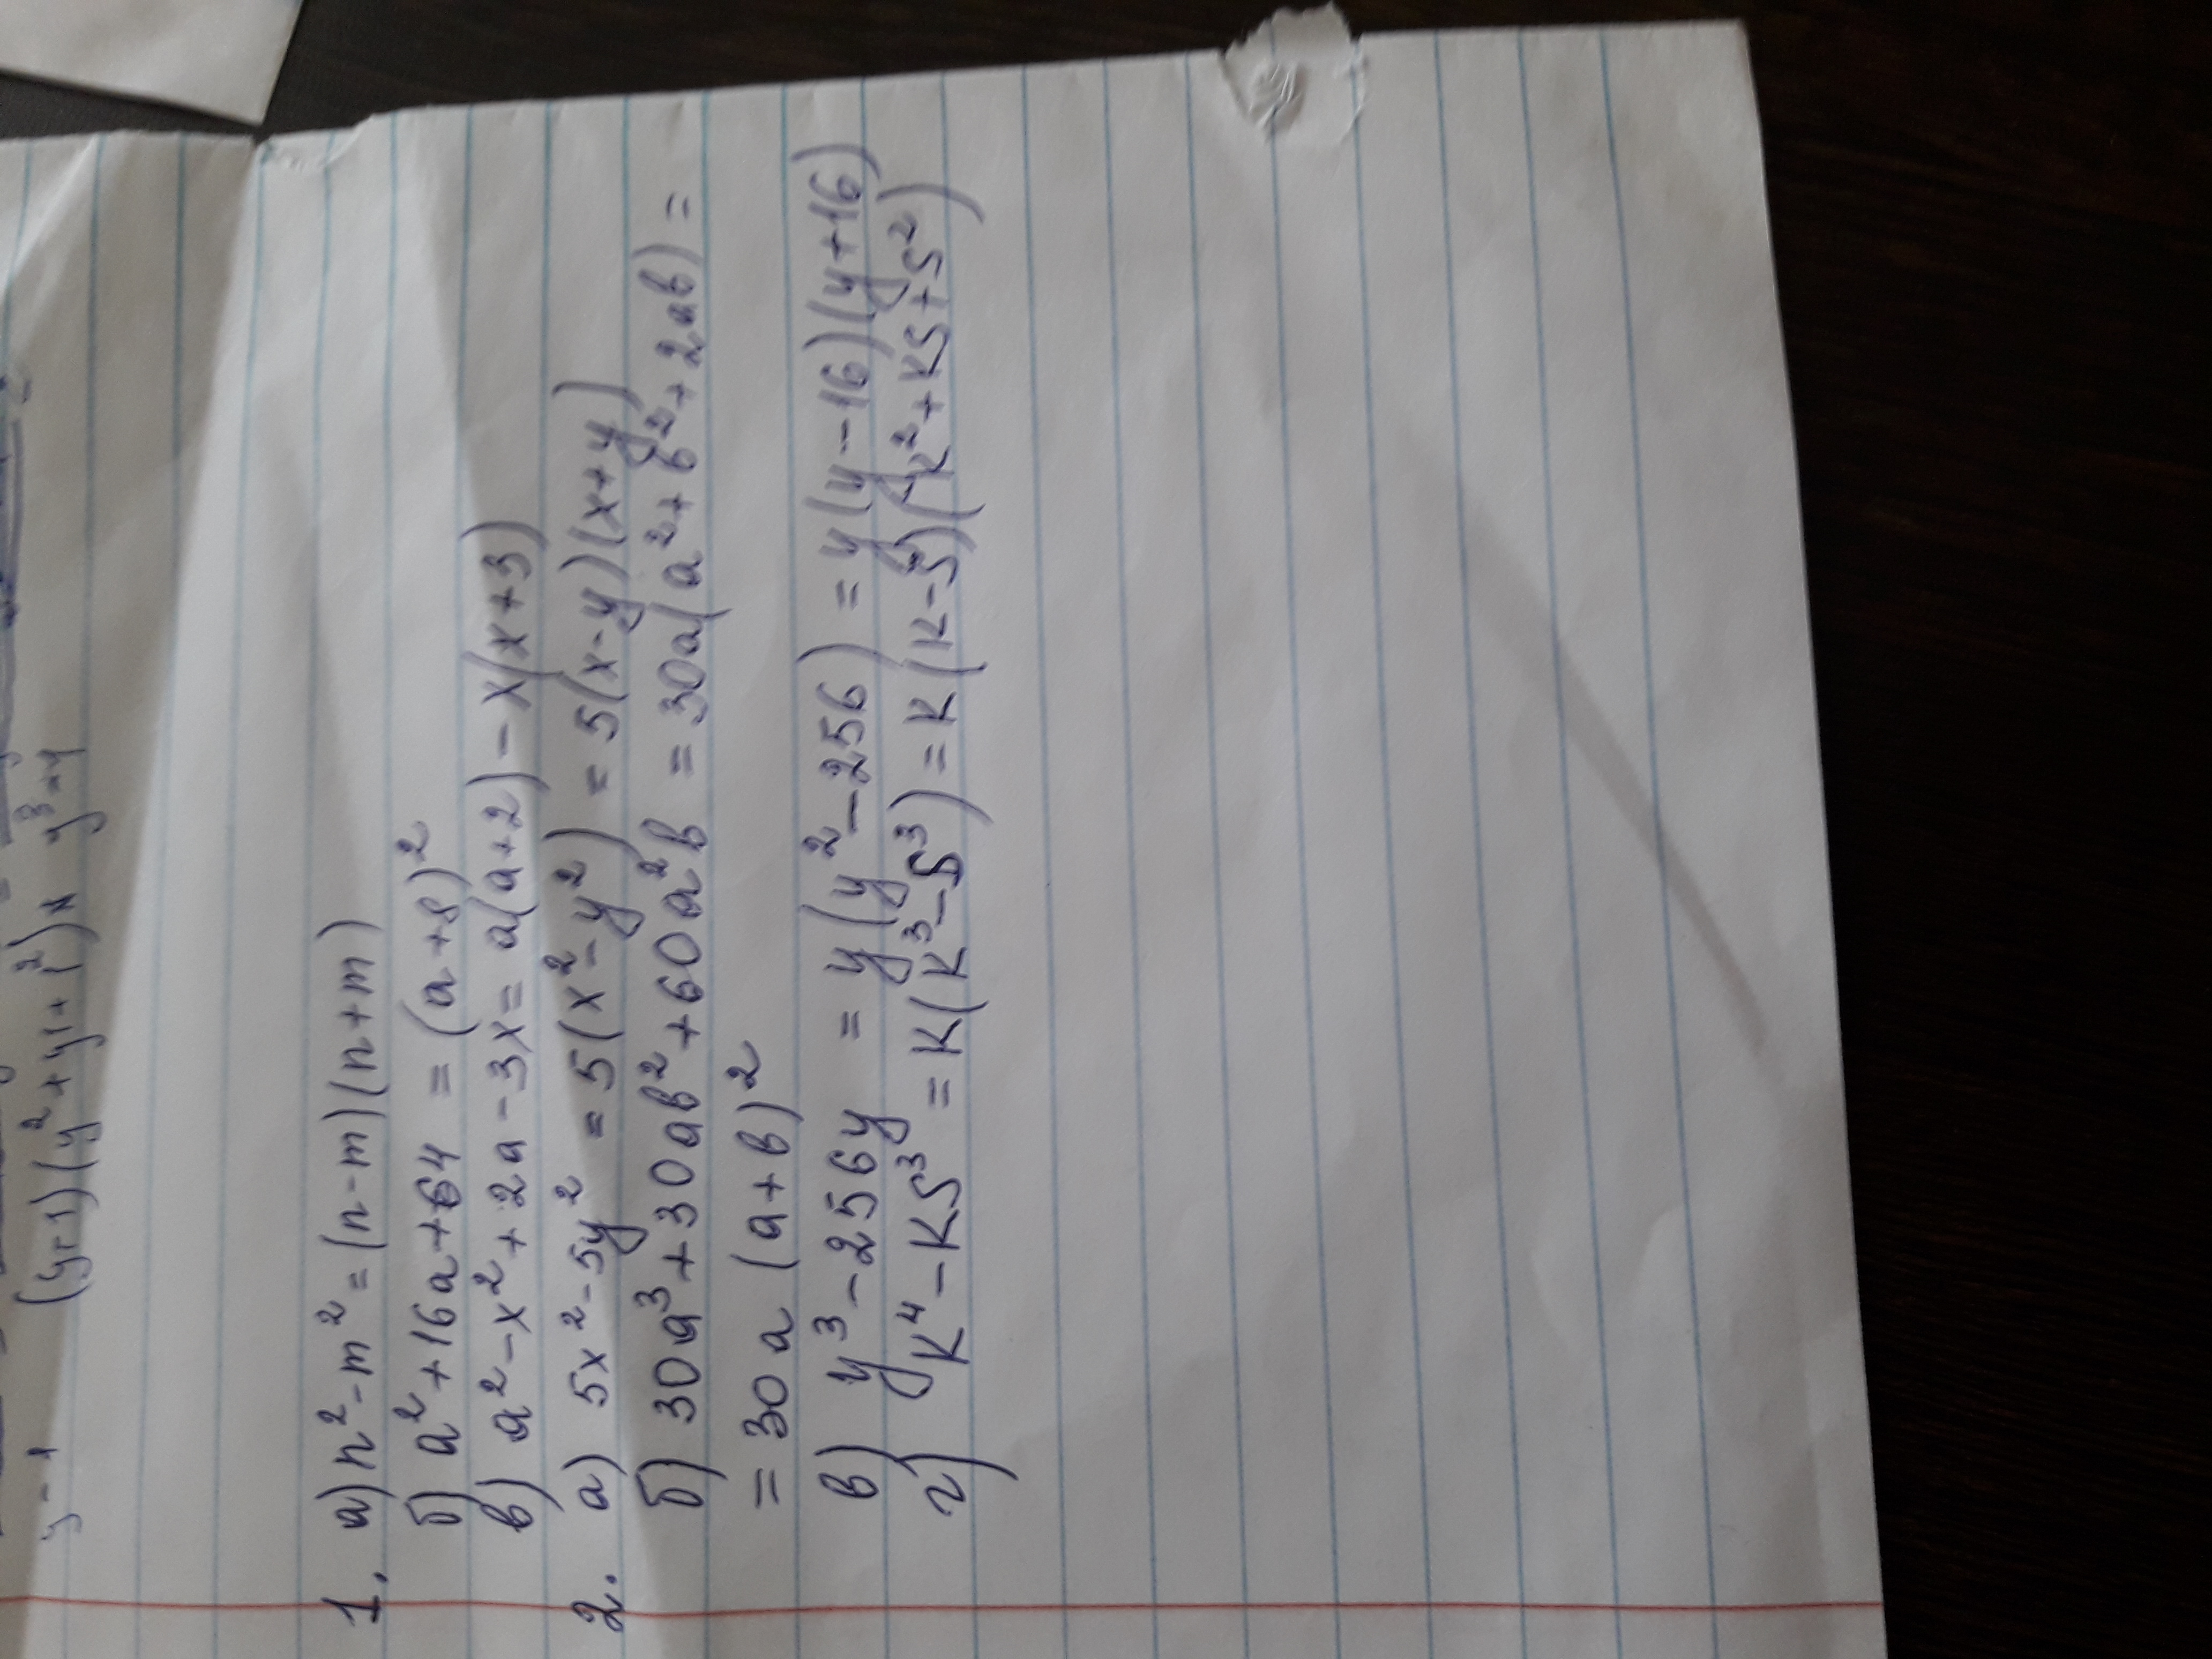 y-1 (y+1)(y²+y1+1²)
1. a) n²-m²=(n-m)(n+m)
б) a²+16a+64 = (a+8)²
в) a²-x²+2a-3x= a(a+2)-x(x+3)
2. a) 5x²-5y² =5(x²-y²) =5(x-y)(x+y)
б) 30a³+30ab²+60a²b =30a(a²+b²+2ab)=
= 30a (a+b)²
в) y³-256y = y(y²-256) = y(y-16)(y+16)
г) K⁴-KS³ = K(K³-S³) = K(K-S)(K²+KS+S²)